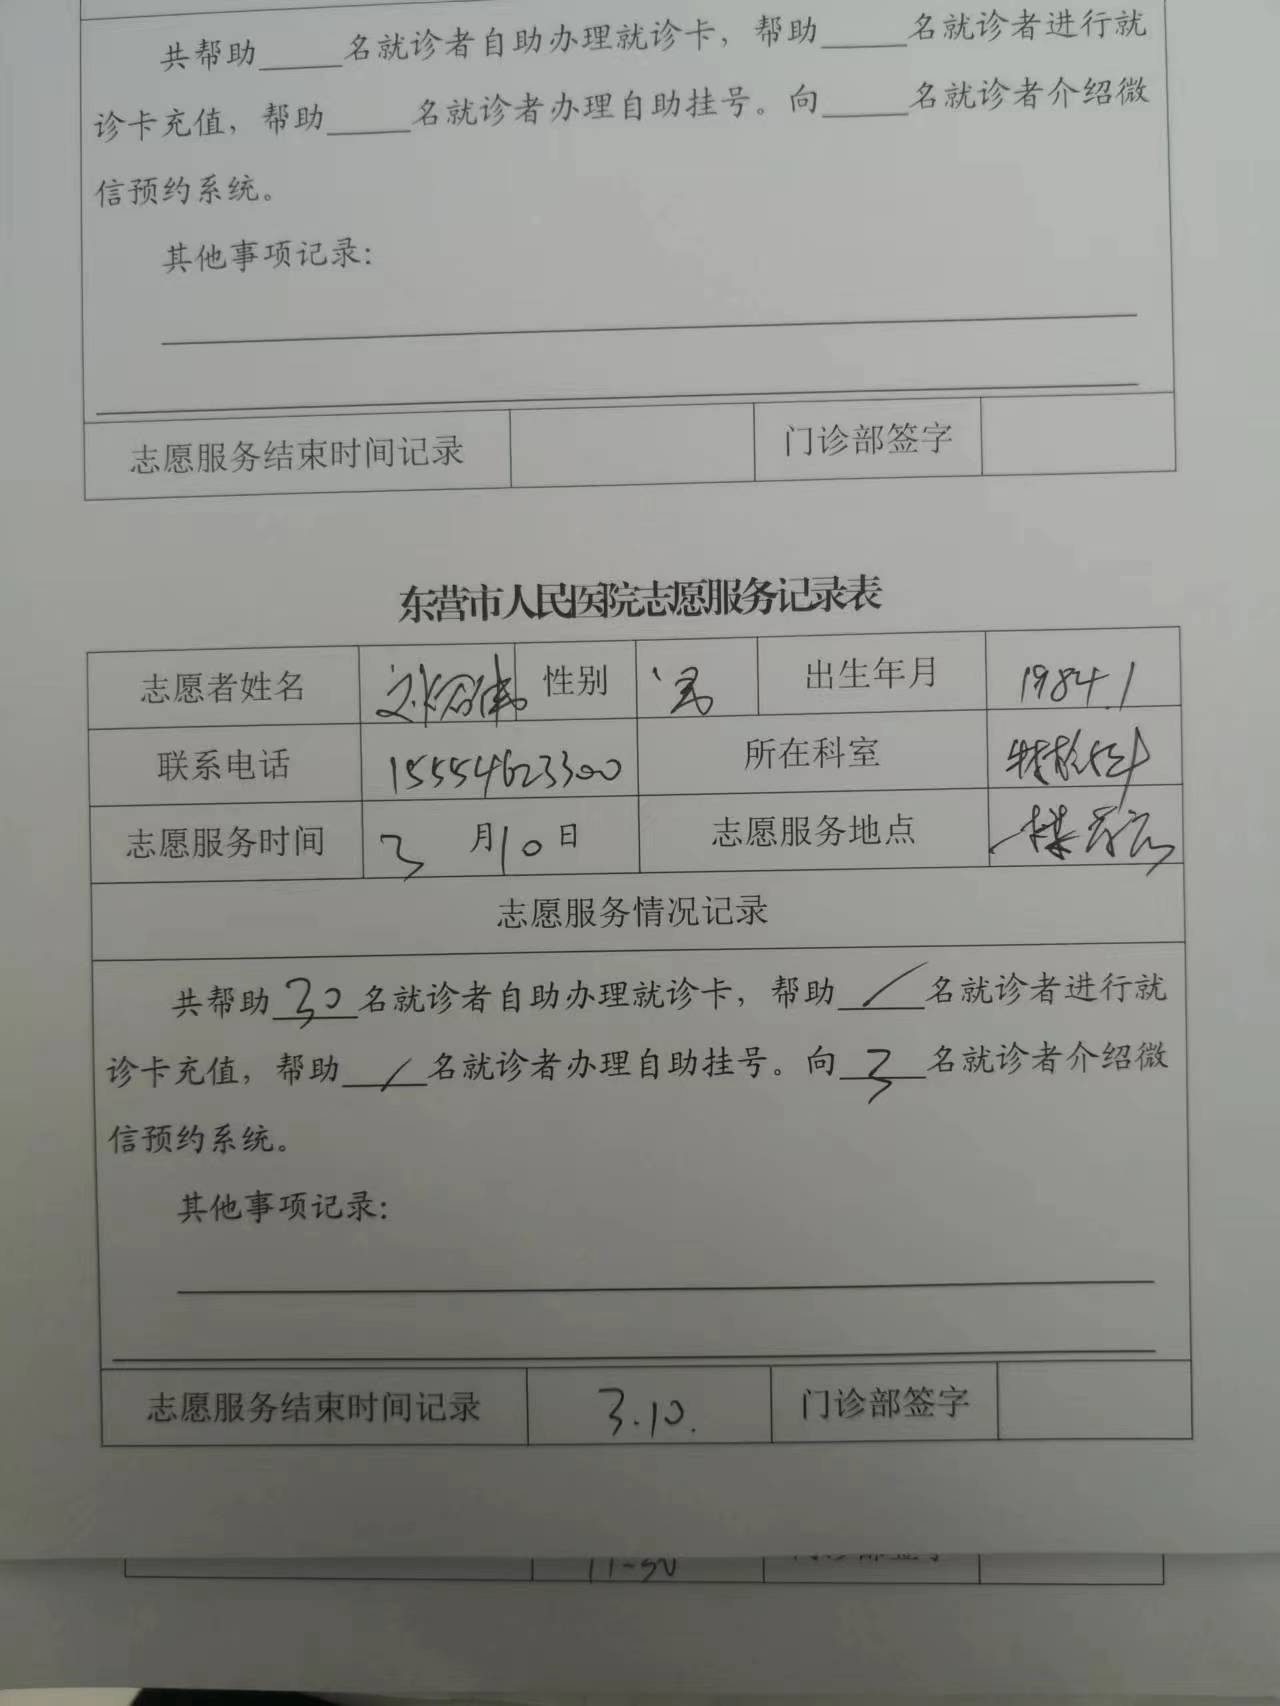 共帮助____名就诊者自助办理就诊卡，帮助____名就诊者进行就
诊卡充值，帮助____名就诊者办理自助挂号。向____名就诊者介绍微
信预约系统。
其他事项记录：
志愿服务结束时间记录 门诊部签字
东营市人民医院志愿服务记录表
志愿者姓名 性别 男 出生年月 1984.1
联系电话 15554623300 所在科室
志愿服务时间 3 月 10 日 志愿服务地点
志愿服务情况记录
共帮助 30 名就诊者自助办理就诊卡，帮助 / 名就诊者进行就
诊卡充值，帮助 / 名就诊者办理自助挂号。向 3 名就诊者介绍微
信预约系统。
其他事项记录：
志愿服务结束时间记录 3.10. 门诊部签字
11-30 门诊部签字